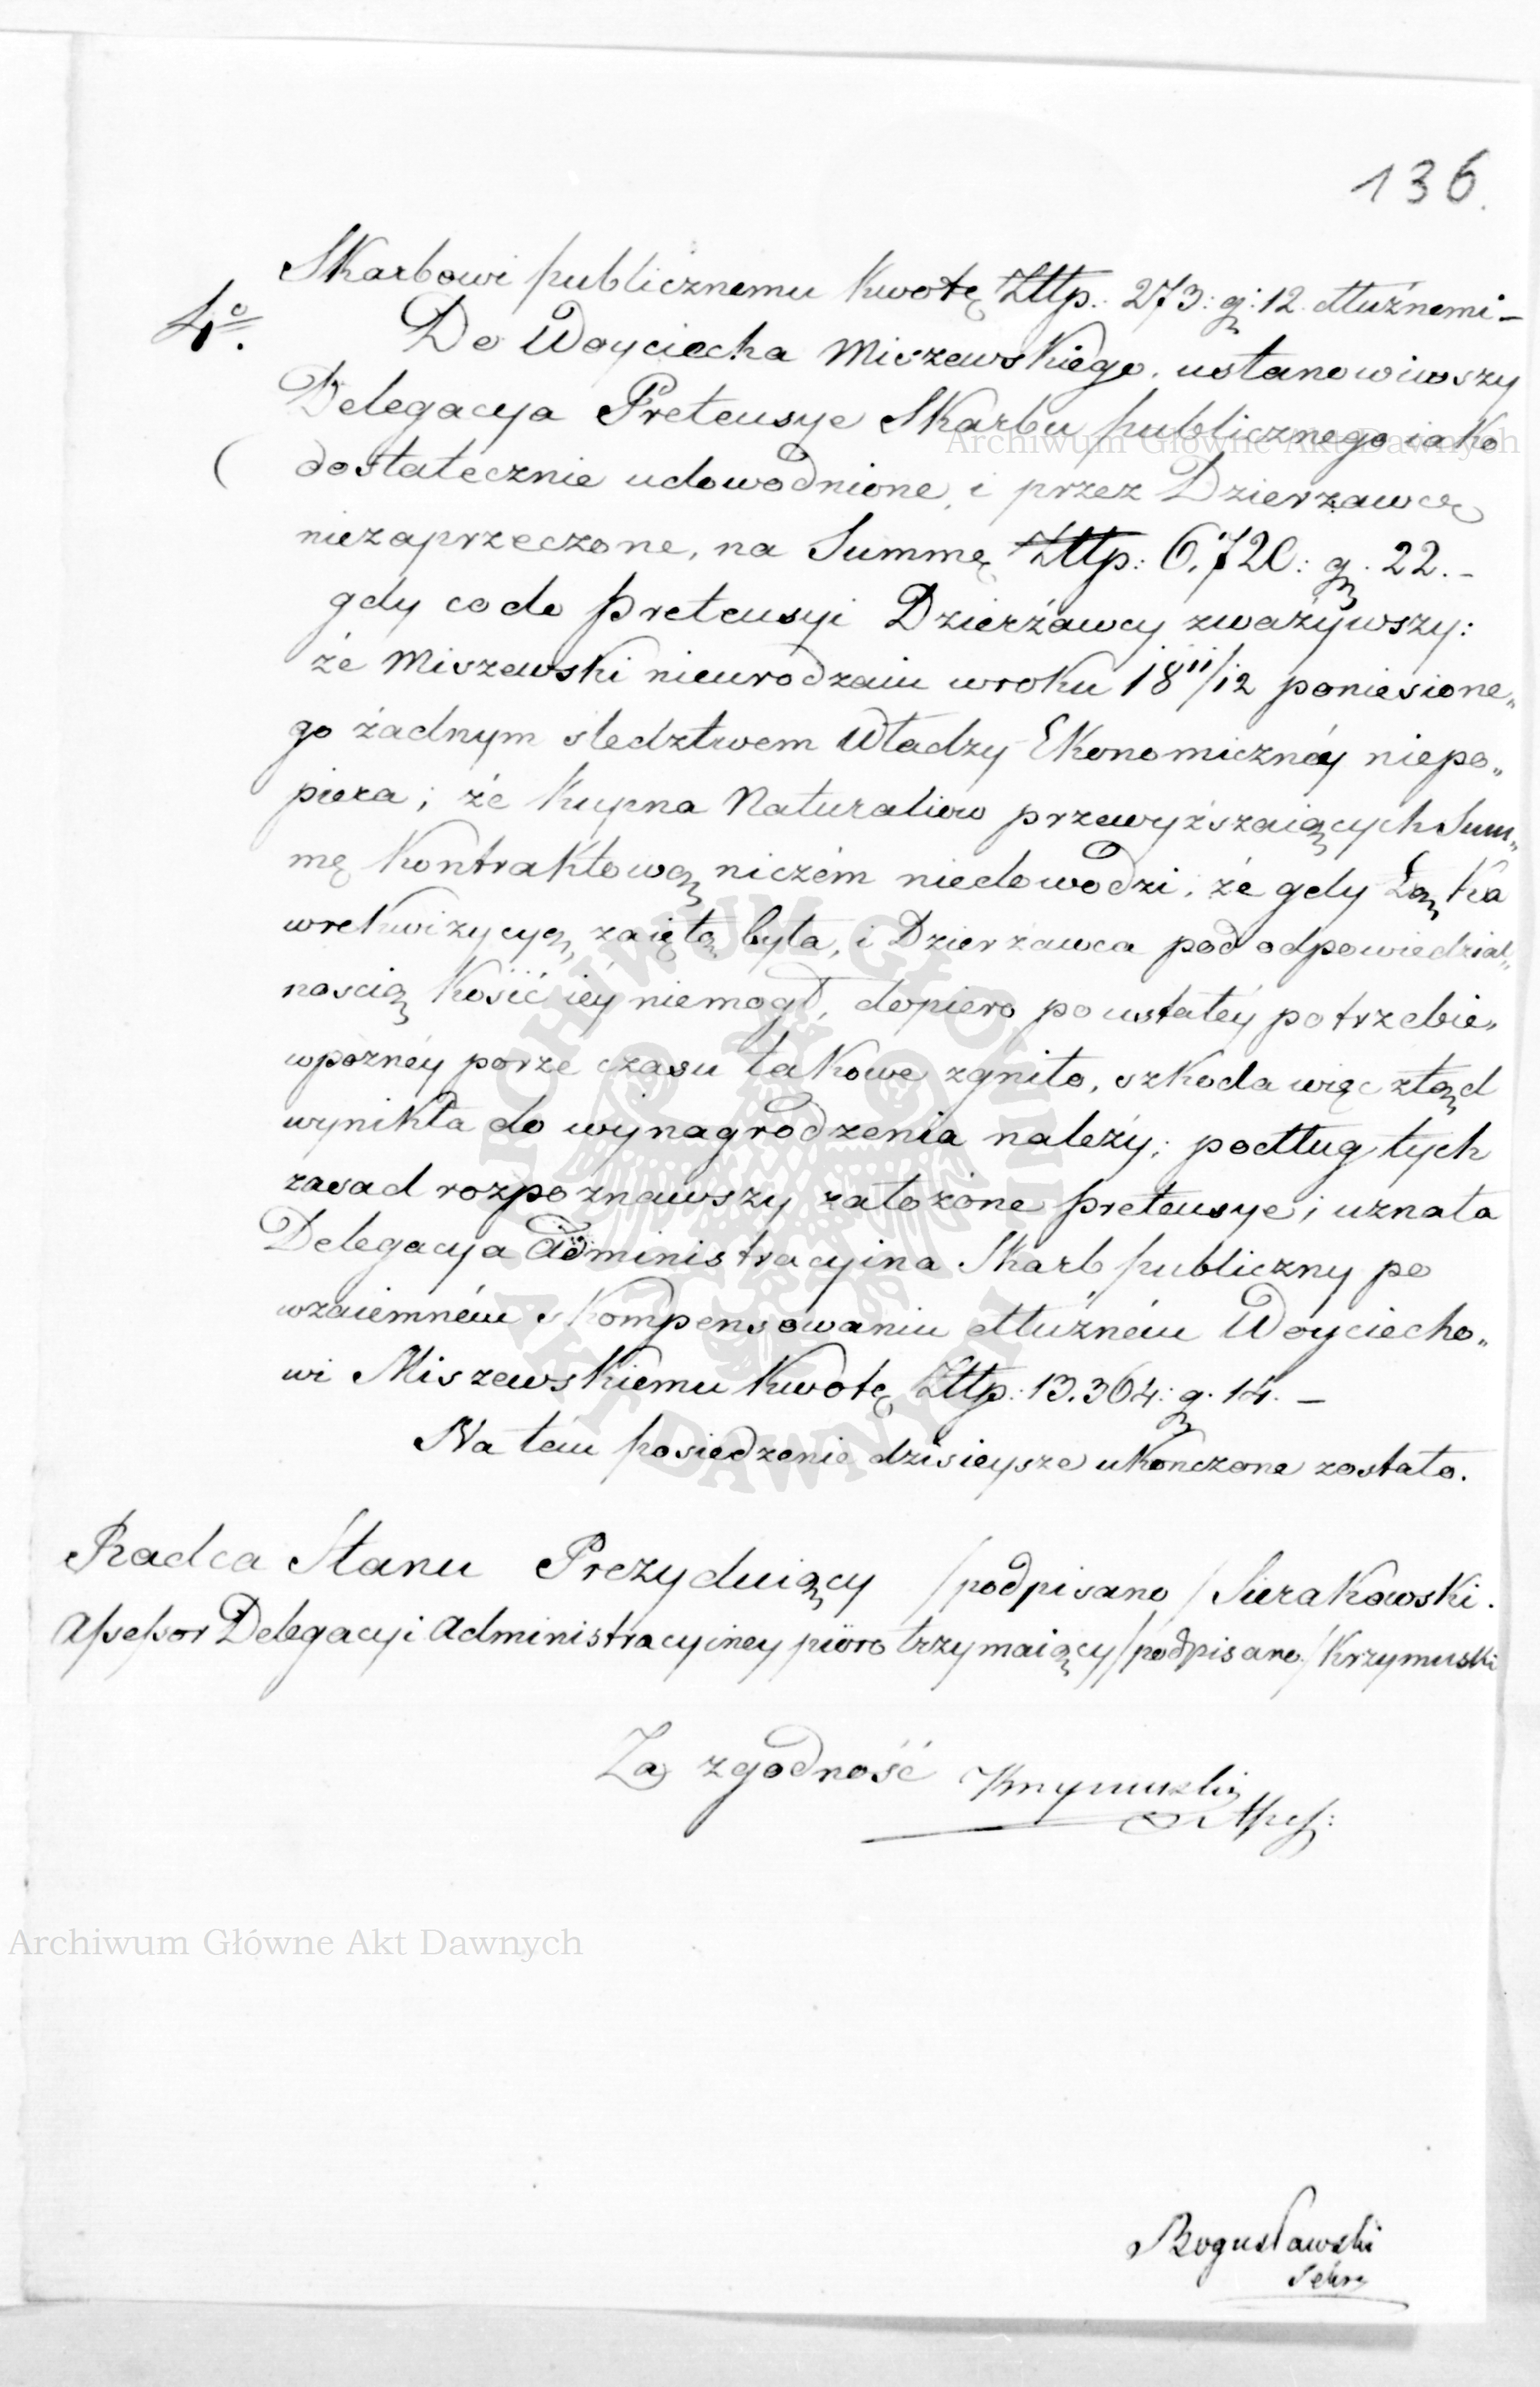 136.
Skarbowi publicznemu kwotę Złłp. 273: g: 12. dłużnemi –
4º. Do Woyciecha Miszewskiego. ustanowiwszy
Delegacya Pretensye Skarbu publicznego iako
Archiwum Główne Akt Dawnych
( dostatecznie udowodnione, i przez Dzierzawcę
niezaprzeczone, na Summę Złłp: 6,720: g. 22. –
gdy co do pretensyi Dzierżawcy zważywszy:
że Miszewski nieurodzaiu wroku 18 11/12 poniesione„
go żadnym sledztwem Władzy Ekonomicznéy niepo„
piera; że kupna Naturaliow przewyższaiących Sum„
mę kontraktową niczém niedowodzi; że gdy Łąka
wrekwizycyą zaiętą była, i Dzierzawca pod odpowiedzial„
noscią kosić iéy niemogł, dopiero po ustałéy potrzebie„
wpoznéy porze czasu takowe zgniło, szkoda więc ztąd
wynikła do wynagrodzenia należy; podług tych
zasad rozpoznawszy założone pretensye; uznała
Delegacya Administracyina Skarb publiczny po
wzaiemném skompensowaniu dłużném Woyciecho„
wi Miszewskiemu kwotę Złłp: 13.364: g. 14. –
Na tém posiedzenie dzisieysze ukończone zostało.
Radca Stanu Prezyduiący /podpisano/ Sierakowski.
Assessor Delegacyi Administracyiney pióro trzymaiący /podpisano/ Krzymuski
Za zgodność Krzymuski
Assess:
Archiwum Główne Akt Dawnych
Bogusławski
Sekr
ARCHIWUM GŁÓWNE
AKT DAWNYCH